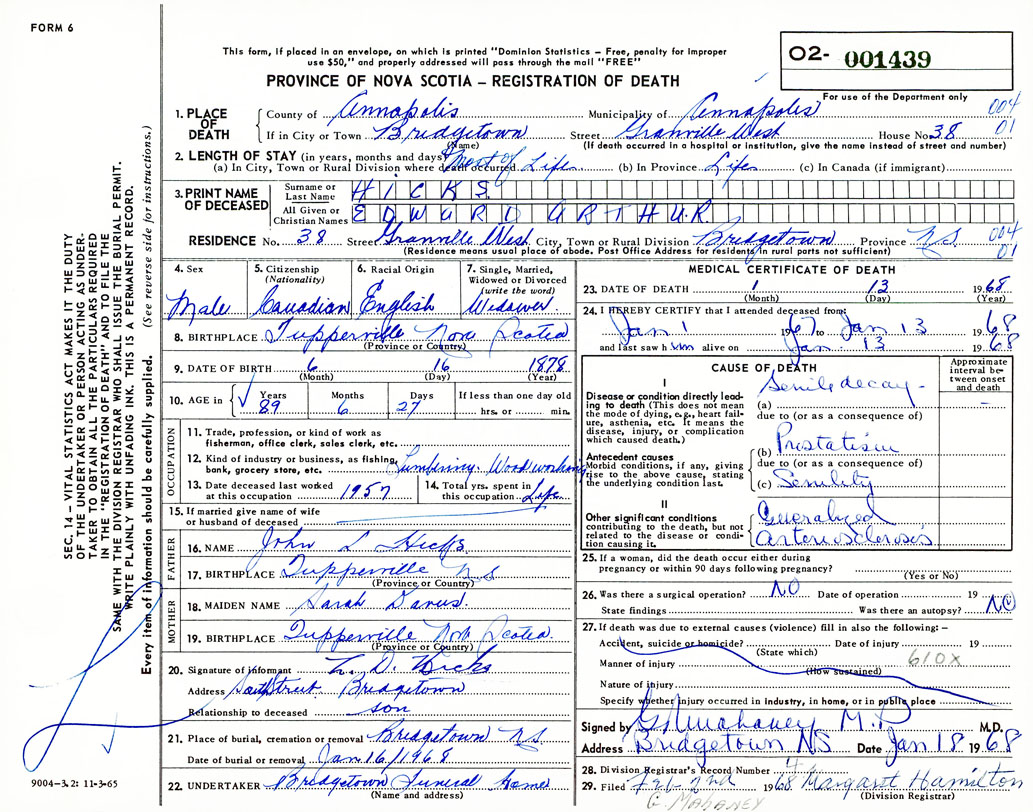 FORM 6
This form, if placed in an envelope, on which is printed "Dominion Statistics – Free, penalty for improper
use $50," and properly addressed will pass through the mail "FREE"
PROVINCE OF NOVA SCOTIA – REGISTRATION OF DEATH
O2- 001439
For use of the Department only
004
01
1. PLACE OF DEATH
County of Annapolis Municipality of Annapolis
If in City or Town Bridgetown Street Granville West House No. 38
(Name) (If death occurred in a hospital or institution, give the name instead of street and number)
2. LENGTH OF STAY (in years, months and days)
(a) In City, Town or Rural Division where death occurred Most of Life (b) In Province Life (c) In Canada (if immigrant)
3. PRINT NAME OF DECEASED
Surname or Last Name HICKS
All Given or Christian Names EDWARD ARTHUR
RESIDENCE No. 38 Street Granville West City, Town or Rural Division Bridgetown Province N.S. 004
(Residence means usual place of abode. Post Office Address for residents in rural parts not sufficient) 01
4. Sex
Male
5. Citizenship
(Nationality)
Canadian
6. Racial Origin
English
7. Single, Married,
Widowed or Divorced
(write the word)
Widower
8. BIRTHPLACE Tupperville Nova Scotia
(Province or Country)
9. DATE OF BIRTH 6 16 1878
(Month) (Day) (Year)
10. AGE in Years Months Days If less than one day old
89 6 27 hrs. or min.
OCCUPATION
11. Trade, profession, or kind of work as
fisherman, office clerk, sales clerk, etc.
12. Kind of industry or business, as fishing,
bank, grocery store, etc. Lumbering. Woodworking
13. Date deceased last worked
at this occupation 1957
14. Total yrs. spent in
this occupation Life
15. If married give name of wife
or husband of deceased
FATHER
16. NAME John L Hicks
17. BIRTHPLACE Tupperville N S
(Province or Country)
MOTHER
18. MAIDEN NAME Sarah
19. BIRTHPLACE Tupperville Nova Scotia
(Province or Country)
20. Signature of informant D. Hicks
Address Bridgetown
Relationship to deceased son
21. Place of burial, cremation or removal Bridgetown N S
Date of burial or removal Jan 16/1968
22. UNDERTAKER Bridgetown Funeral Home
(Name and address)
MEDICAL CERTIFICATE OF DEATH
23. DATE OF DEATH 1 13 1968
(Month) (Day) (Year)
24. I HEREBY CERTIFY that I attended deceased from:
Jan 1 1967 to Jan 13 1968
and last saw him alive on Jan. 13 1968
CAUSE OF DEATH
Approximate interval between onset and death
I
Disease or condition directly leading to death (This does not mean the mode of dying, e.g., heart failure, asthenia, etc. It means the disease, injury, or complication which caused death.)
(a) Senile decay
due to (or as a consequence of)
Antecedent causes
Morbid conditions, if any, giving rise to the above cause, stating the underlying condition last.
(b) Prostatism
due to (or as a consequence of)
(c) Senility
II
Other significant conditions
contributing to the death, but not
related to the disease or condition causing it.
Generalized
arteriosclerosis
25. If a woman, did the death occur either during
pregnancy or within 90 days following pregnancy?
(Yes or No)
26. Was there a surgical operation? NO Date of operation 19
State findings Was there an autopsy? NO
27. If death was due to external causes (violence) fill in also the following:–
Accident, suicide or homicide? Date of injury 19
(State which)
Manner of injury 610X
(How sustained)
Nature of injury
Specify whether injury occurred in Industry, in home, or in public place
Signed by M.D. M.D.
Address Bridgetown NS Date Jan 18 1968
28. Division Registrar's Record Number 4
29. Filed Feb 2nd 1968 Margaret Hamilton
(Division Registrar)
G. MAHANEY
SEC. 14 – VITAL STATISTICS ACT MAKES IT THE DUTY
OF THE UNDERTAKER OR PERSON ACTING AS UNDER-
TAKER TO OBTAIN ALL THE PARTICULARS REQUIRED
IN THE "REGISTRATION OF DEATH" AND TO FILE THE
SAME WITH THE DIVISION REGISTRAR WHO SHALL ISSUE THE BURIAL PERMIT.
WRITE PLAINLY WITH UNFADING INK. THIS IS A PERMANENT RECORD.
Every item of information should be carefully supplied. (See reverse side for instructions.)
9004–3.2: 11-3-65